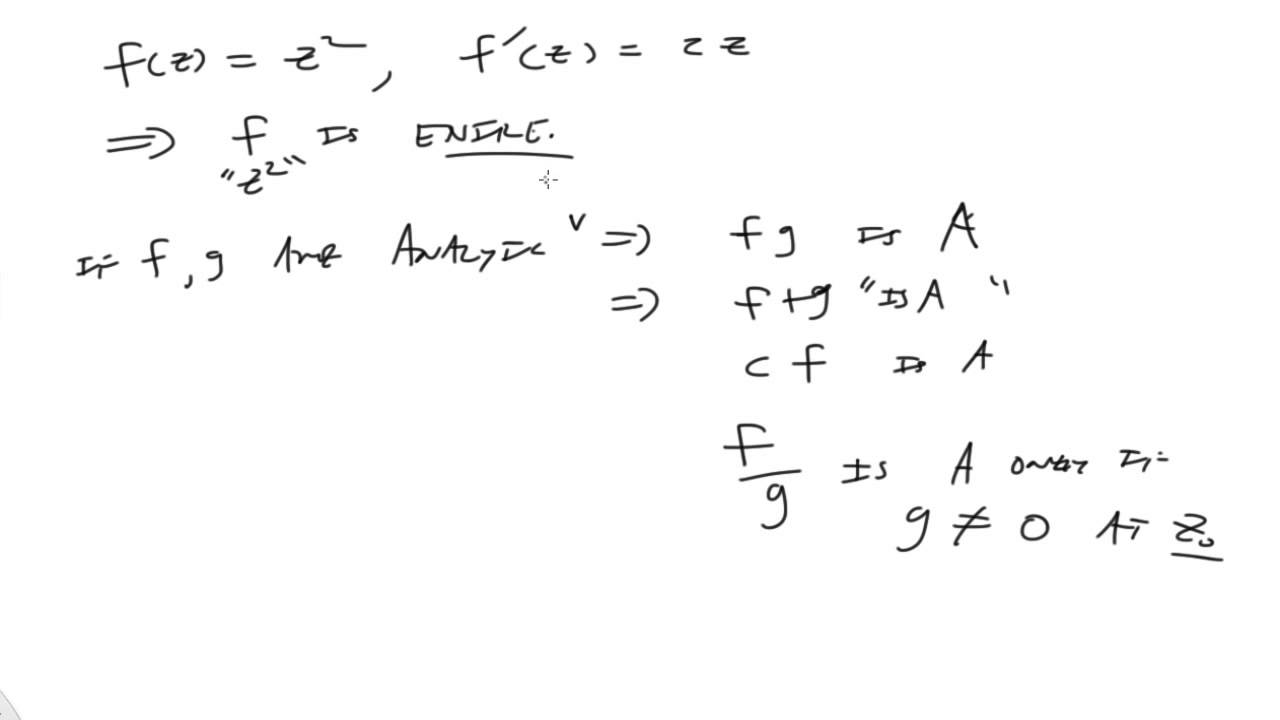 f(z) = z², f'(z) = 2z
⇒ f Is ENTIRE.
"z²"
If f, g Are Analytic ⇒ fg Is A
⇒ f+g "Is A"
cf Is A
f/g Is A only If
g ≠ 0 At z₀